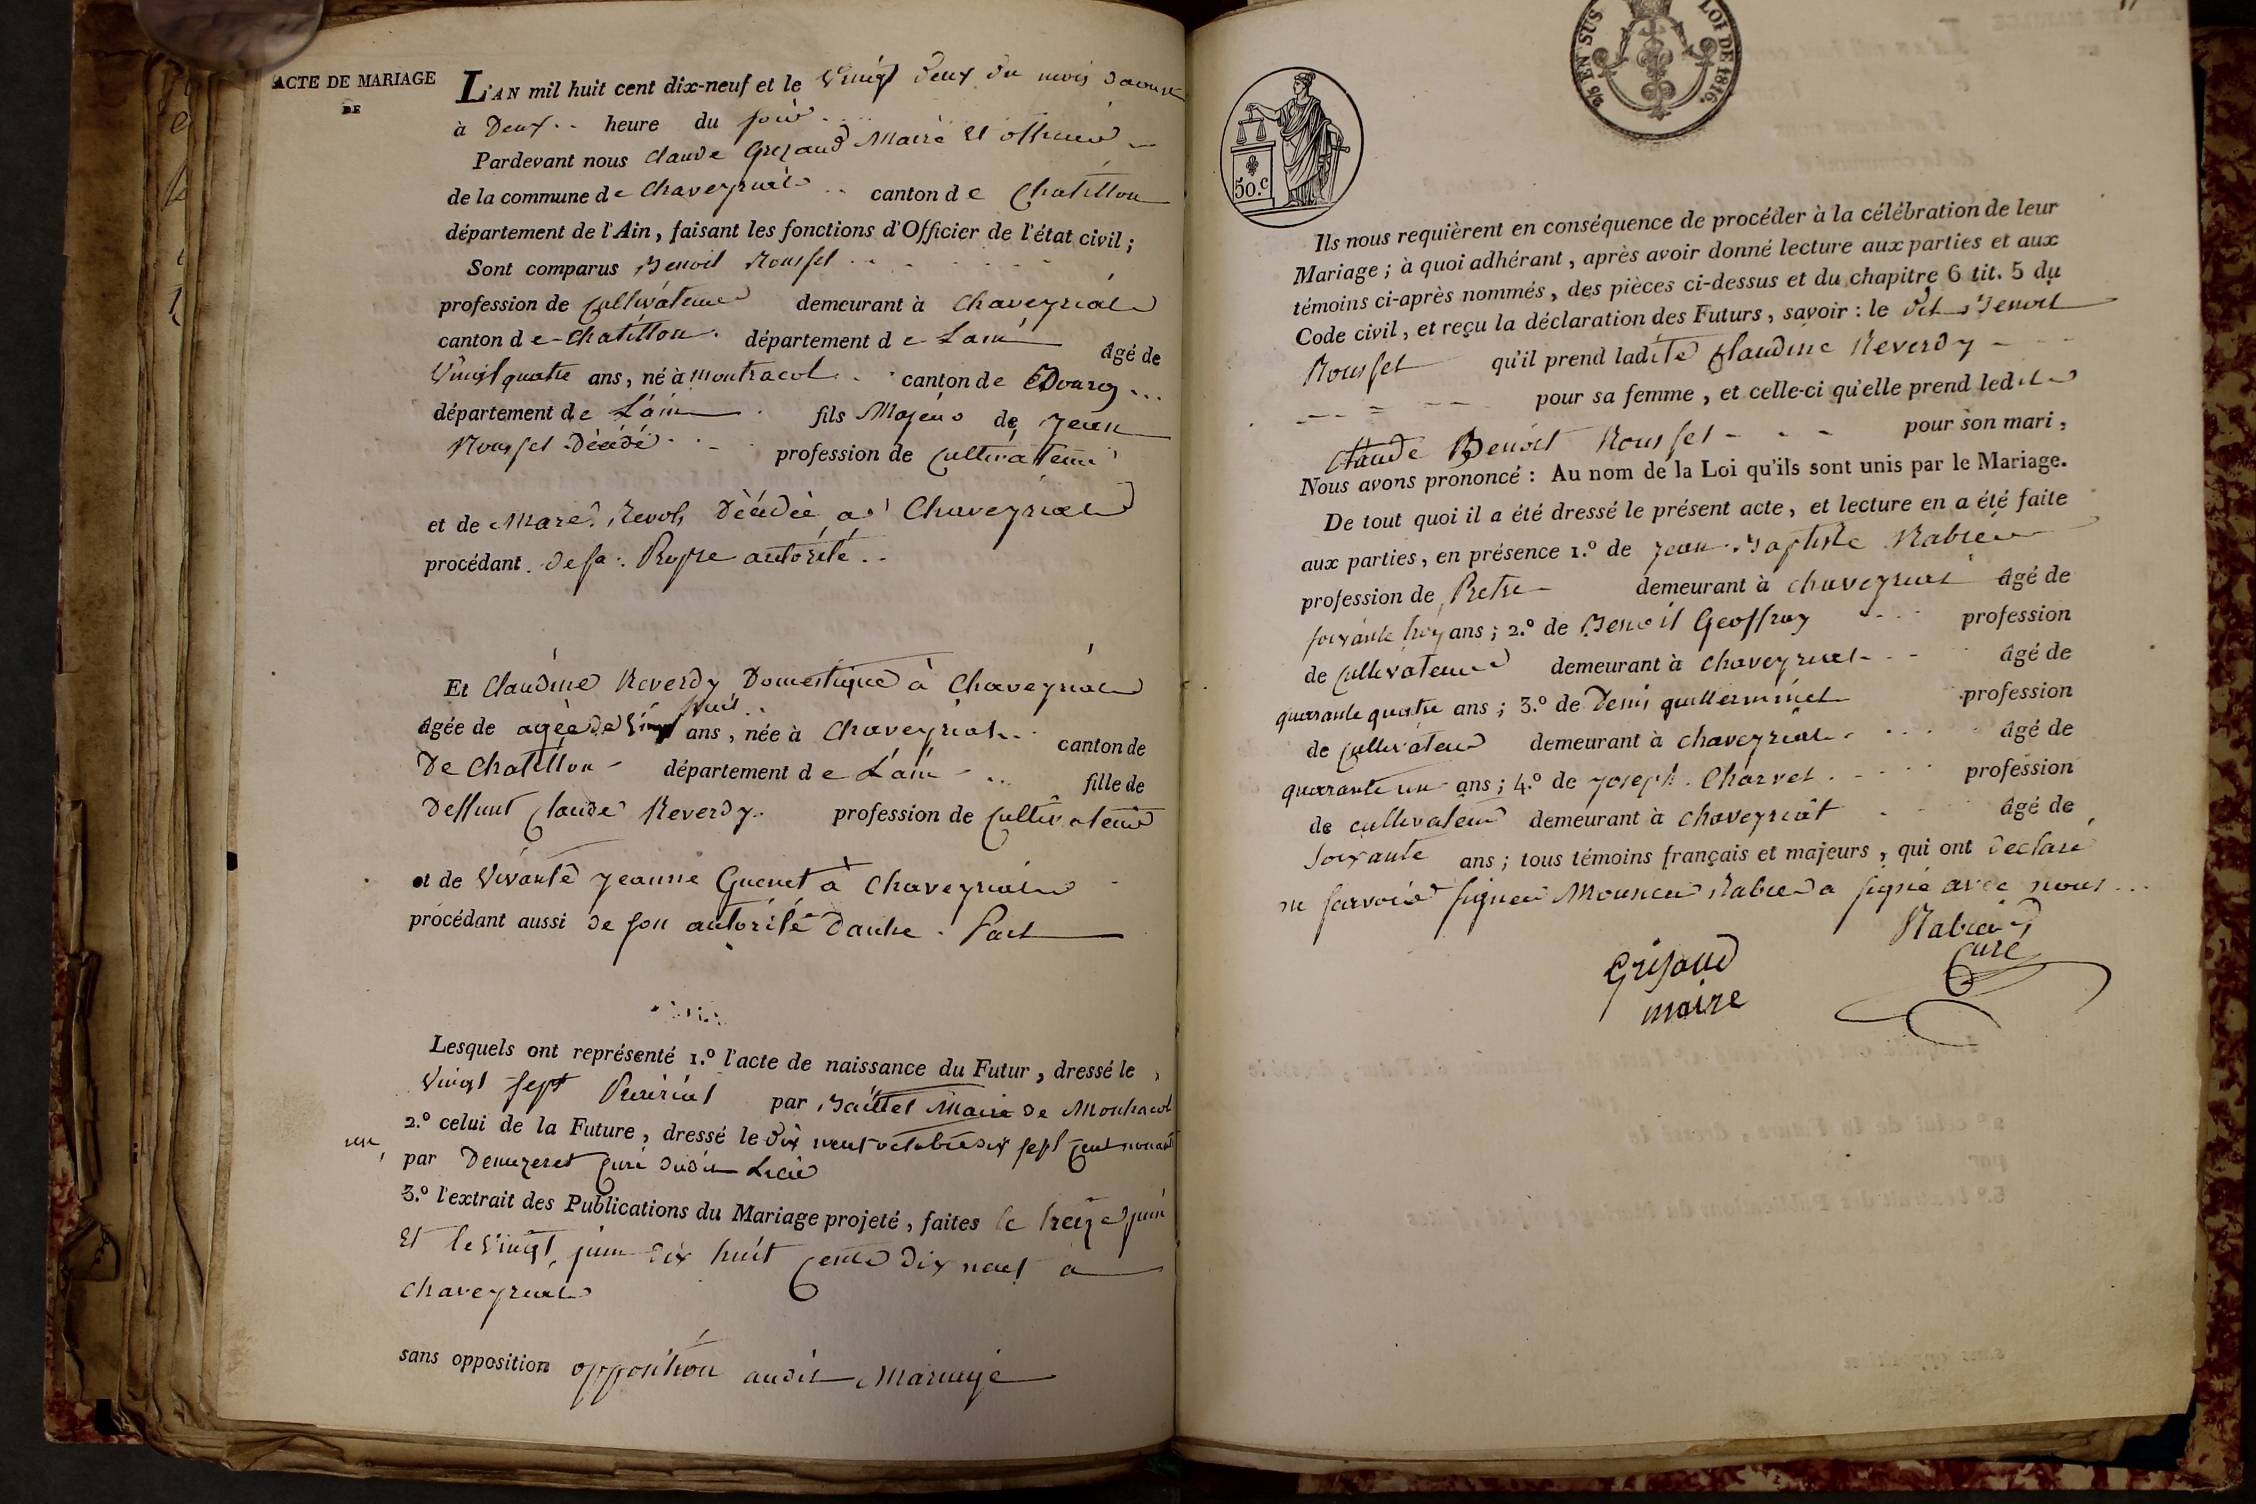 ACTE DE MARIAGE
DE
L'AN mil huit cent dix-neuf et le vingt deux du mois daoust
à Deux heure du soir
Pardevant nous Claude Grizaud Maire et officier
de la commune de Chaveyriat canton de Chatillon
département de l'Ain, faisant les fonctions d'Officier de l'état civil ;
Sont comparus Benoit Rousset
profession de Cultivateur demeurant à Chaveyriat
canton de Chatillon département de Lain âgé de
Vingt quatre ans, né à montracol canton de Bourg
département de Lain fils Majeur de Jean
Rousset Décédé profession de Cultivateur
et de Marie Revol Décédée a Chaveyriat
procédant de sa Propre autorité
Et Claudine Reverdy Domestique à Chaveyriat
huit
âgée de agée de vingt ans, née à Chaveyriat canton de
De Chatillon département de Lain fille de
Deffunt Claude Reverdy profession de Cultivateur
et de Vivante Jeanne Guenet à Chaveyriat
procédant aussi de son autorité Dautre Part
Lesquels ont représenté 1.º l'acte de naissance du Futur, dressé le
Vingt sept Prairial par Baillet Maire de Montracol
2.º celui de la Future, dressé le dix neuf octobre dix sept cent nonante
un
par Demezeret Curé dudit Lieu
3.º l'extrait des Publications du Mariage projeté, faites le treize juin
Et le vingt juin dix huit cent dix neuf à
Chaveyriat
sans opposition opposition audit Mariage
50.c
EN SUS LOI DE 1816.
Ils nous requièrent en conséquence de procéder à la célébration de leur
Mariage ; à quoi adhérant, après avoir donné lecture aux parties et aux
témoins ci-après nommés, des pièces ci-dessus et du chapitre 6 tit. 5 du
Code civil, et reçu la déclaration des Futurs, savoir : le dit Benoit
Rousset qu'il prend ladite Claudine Reverdy
pour sa femme, et celle-ci qu'elle prend ledit
Claude Benoit Rousset pour son mari,
Nous avons prononcé : Au nom de la Loi qu'ils sont unis par le Mariage.
De tout quoi il a été dressé le présent acte, et lecture en a été faite
aux parties, en présence 1.º de Jean Baptiste Rabier
profession de Pretre demeurant à chaveyriat âgé de
soixante troy ans ; 2.º de Benoit Geoffray profession
de Cultivateur demeurant à Chaveyriat âgé de
quarante quatre ans ; 3.º de Denis guillerminet profession
de Cultivateur demeurant à chaveyriat âgé de
quarante un ans ; 4.º de Joseph Charvet profession
de cultivateur demeurant à chaveyriat âgé de
soixante ans ; tous témoins français et majeurs, qui ont declaré
ne savoir signer Monsieur Rabier a signé avec nous
Rabier
Curé
Grisaud
maire